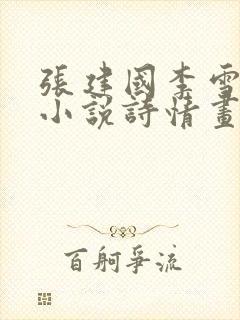 張建國李雪
小說詩情畫
百舸爭流